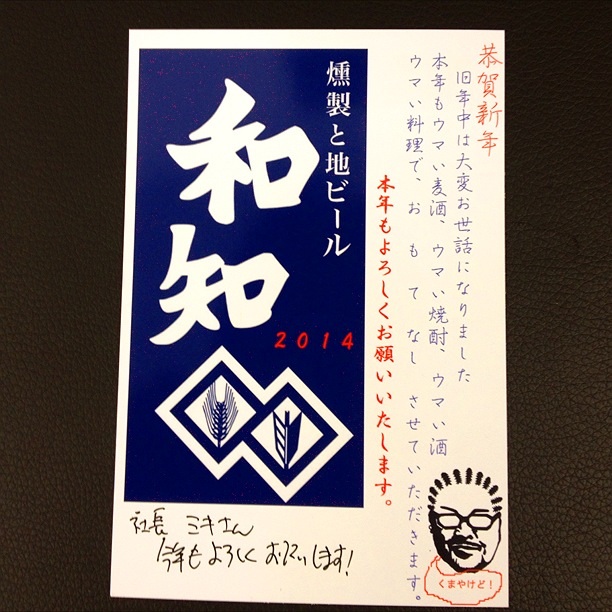 恭賀新年
旧年中は大変お世話になりました
本年もウマい麦酒、ウマい焼酎、ウマい酒
ウマい料理で、おもてなしさせていただきます。
本年もよろしくお願いいたします。
燻製と地ビール
和知
2014
社長 ミキさん
今年もよろしくお願いします!
くまやけど!